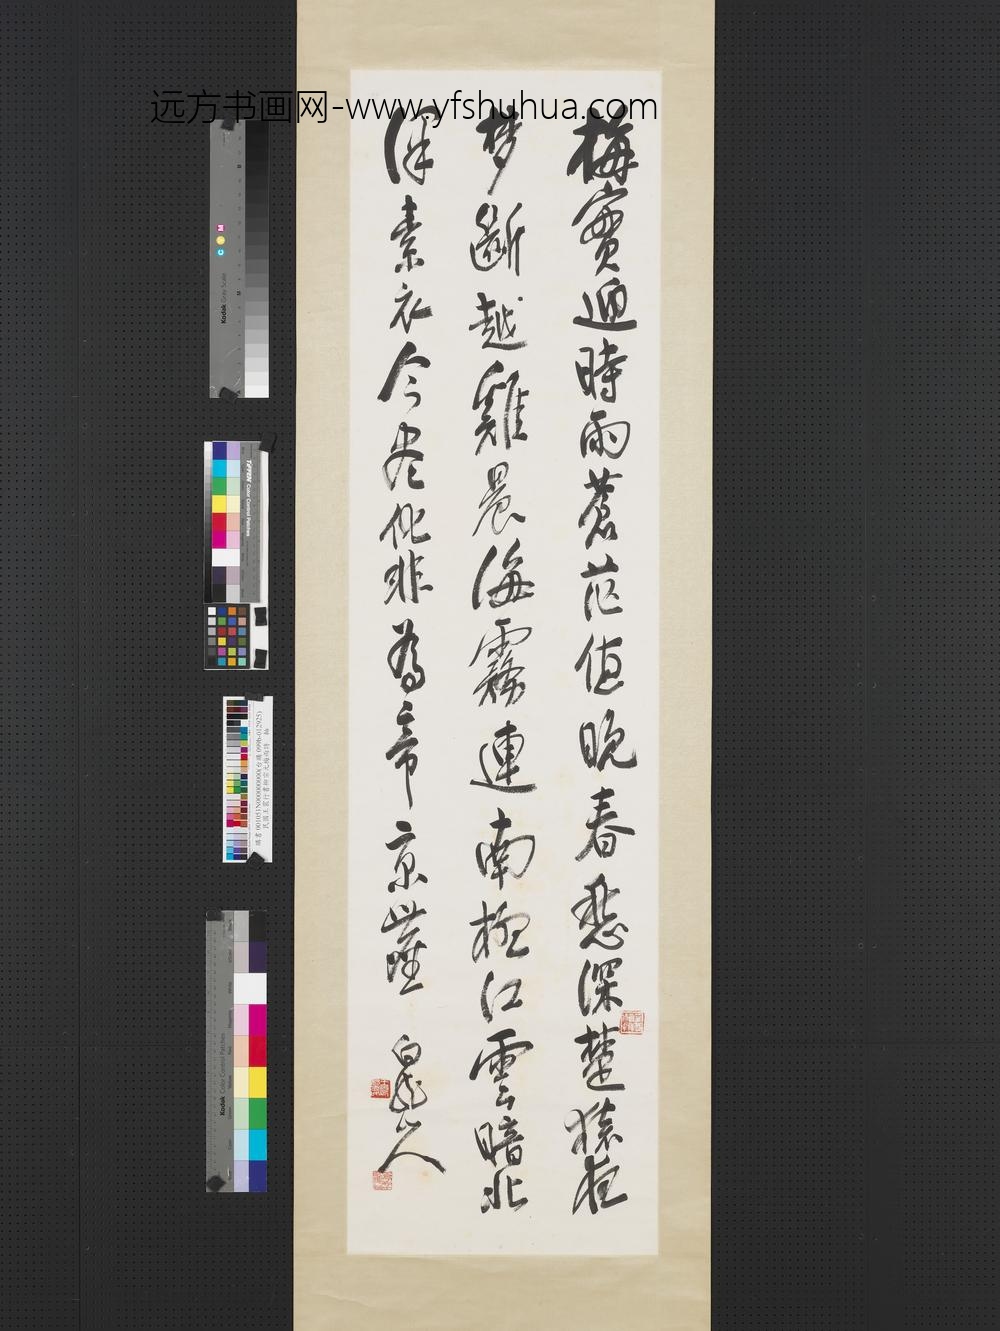 远方书画网-www.yfshuhua.com
梅實迎時雨蒼茫值晚春愁深楚猿夜
梦斷越雞晨海霧連南極江雲暗北
津素衣今尽化非為帝京塵
白龍山人
Kodak Gray Scale
C Y M
TIFFEN Color Control Patches
民國王震行書柳宗元梅雨詩 軸
Kodak Color Control Patches